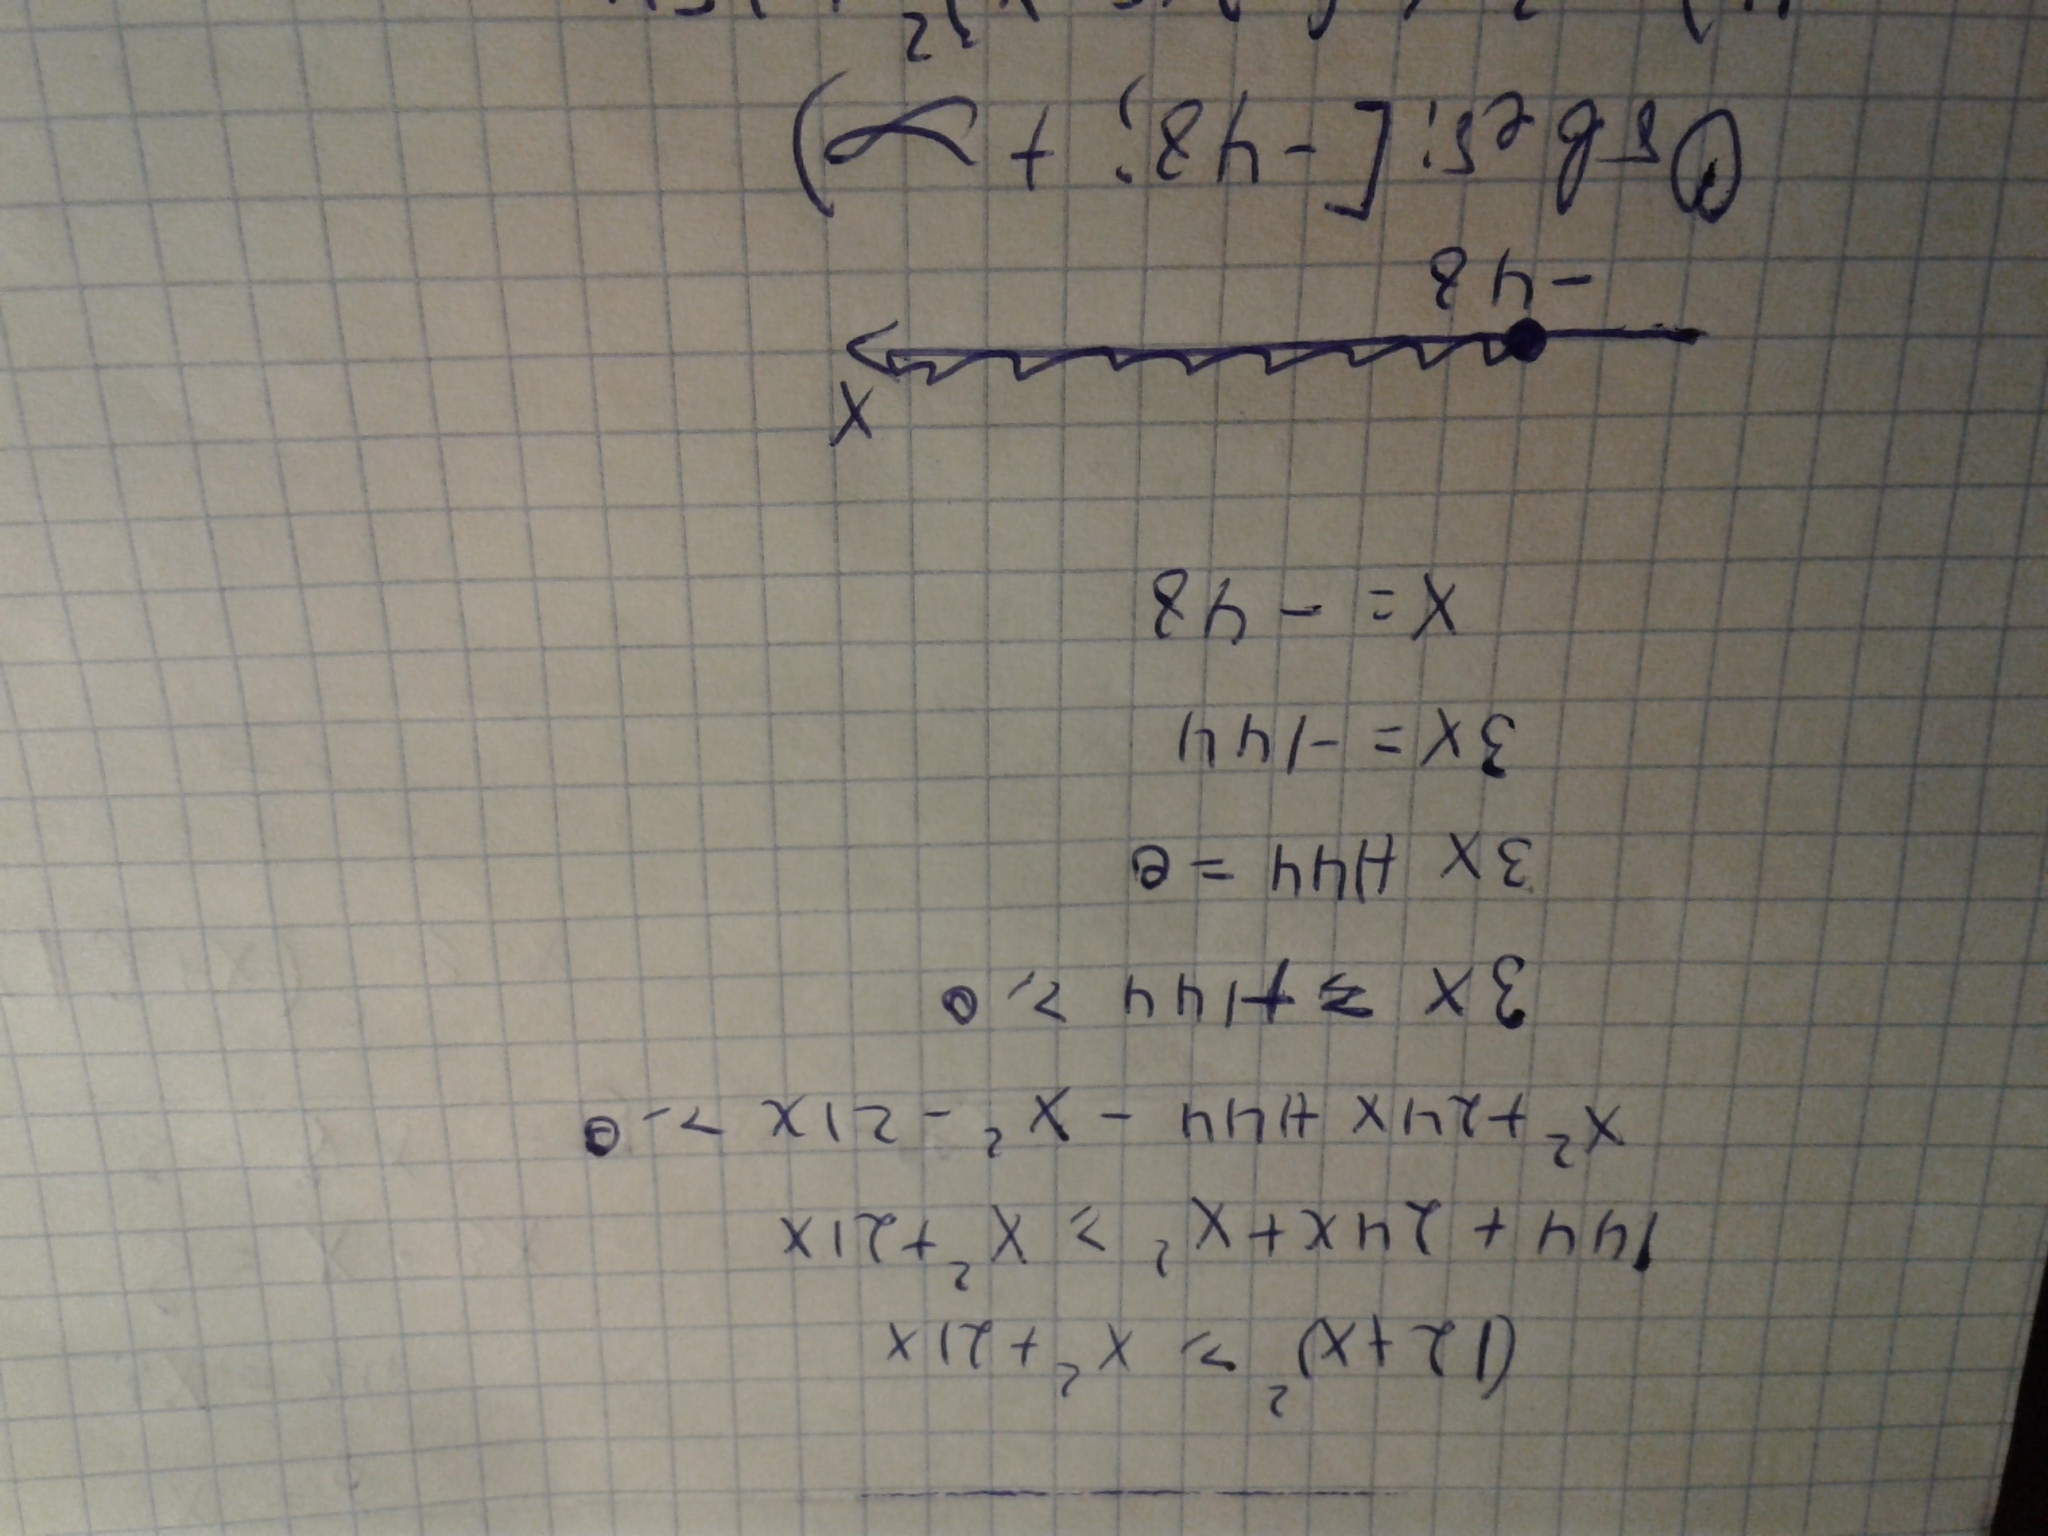 (12+x)² ≥ x²+21x
144+24x+x² ≥ x²+21x
x²+24x+144-x²-21x ≥ 0
3x +144 ≥ 0
3x+144=0
3x=-144
x=-48
x
-48
Ответ: [-48; +∞)